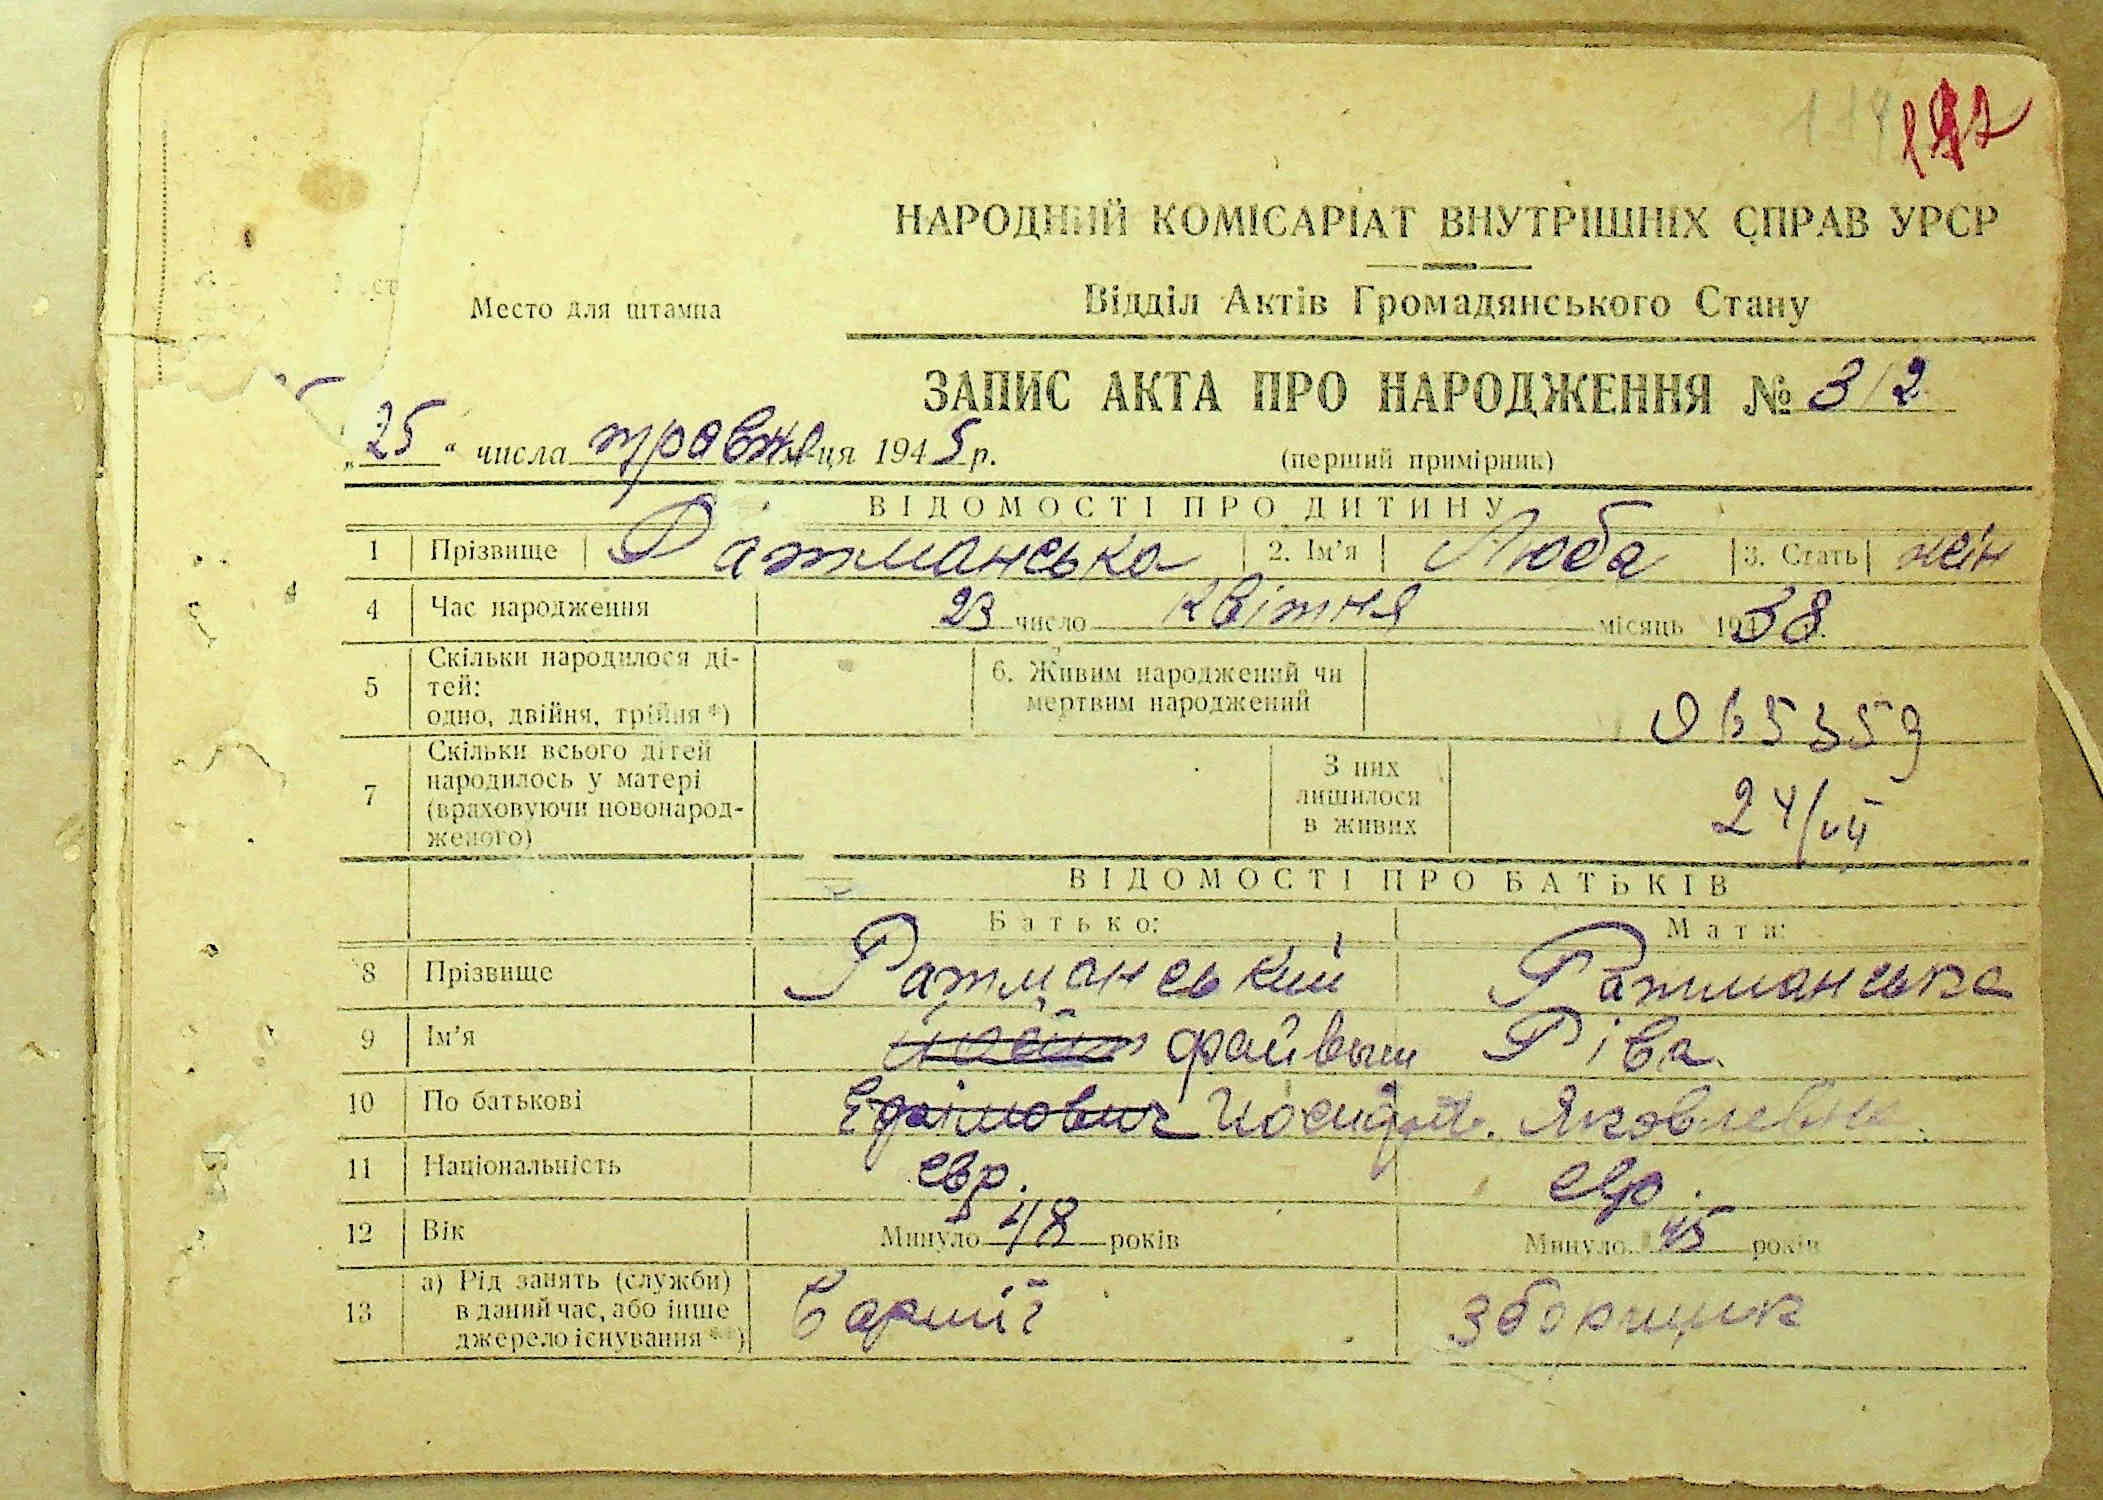 197
НАРОДНИЙ КОМІСАРІАТ ВНУТРІШНІХ СПРАВ УРСР
Место для штампа
Відділ Актів Громадянського Стану
ЗАПИС АКТА ПРО НАРОДЖЕННЯ № 312
„25“ числа травня ця 1945 р.
(перший примірник)
ВІДОМОСТІ ПРО ДИТИНУ
1 Прізвище Ратманська 2. Ім'я Люба 3. Стать жін
4 Час народження 23 число квітня місяць 1938 р.
5 Скільки народилося ді-
тей:
одно, двійня, трійня *)
6. Живим народжений чи
мертвим народжений
065359
7 Скільки всього дітей
народилось у матері
(враховуючи новонарод-
женого)
З них
лишилося
в живих
24/VII
ВІДОМОСТІ ПРО БАТЬКІВ
Батько: Мати:
8 Прізвище Ратманський Ратманська
9 Ім'я файвыш Ріва
10 По батькові Ефімович Иосифов. Яковлевна
11 Національність евр. евр.
12 Вік Минуло 48 років Минуло 45 років
13 а) Рід занять (служби)
в даний час, або інше
джерело існування **)
В армії зборщик